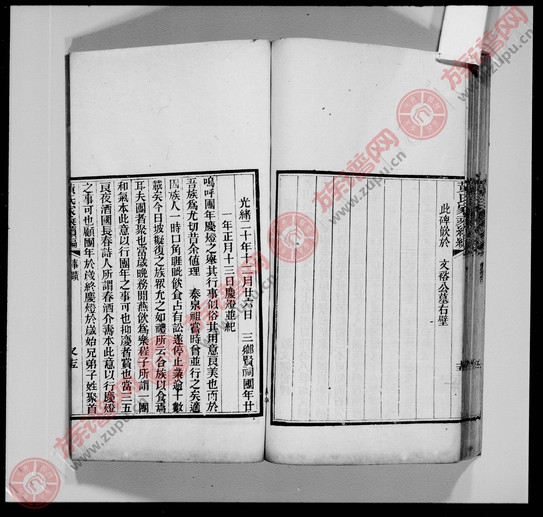 此碑嵌於 文裕公墓右壁
光緒二十年十二月廿六日 三鄉賢祠團年廿
一年正月十三日慶燈並紀
嗚呼團年慶燈之舉其行事似俗其用意良美也而於
吾族為尤切昔余值理 泰泉祖嘗時曾並行之矣適
因族人一時口角睚眦飲食占有訟遂停止業逾十數
載矣今日坡擬復之族眾允之如禮所云合族以食焉
耳夫團者聚也當歲晚務閒燕飲為樂程子所謂一團
和氣本此意以行團年之事可也抑慶者賞也當三五
良夜酒國長春詩人所謂春酒介壽本此意以行慶燈
之事可也顧團年於歲終慶燈於歲始兄弟子姓聚首
又五
族譜网
www.zupu.cn